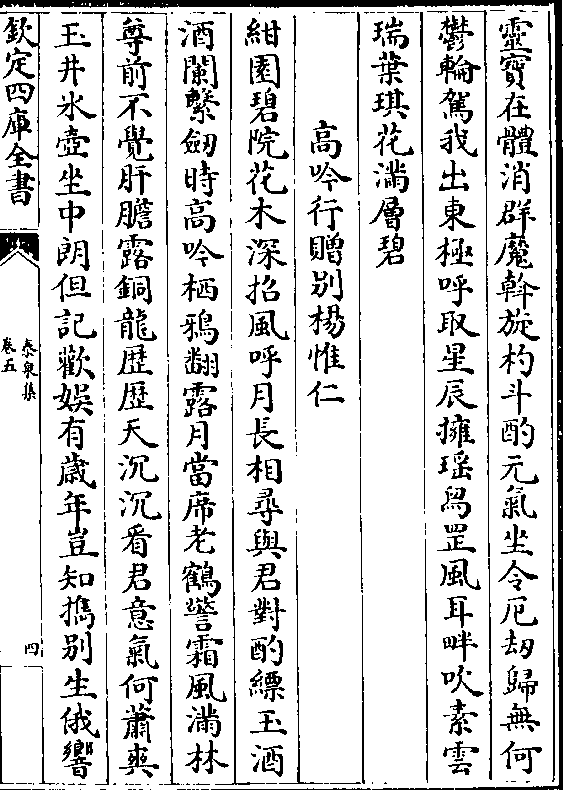 靈寶在體消群魔斡旋杓斗酌元氣坐令厄劫歸無何
鬱輪駕我出東極呼取星辰擁瑶舄罡風耳畔吹素雲
瑞葉琪花滿層碧
高吟行贈别楊惟仁
紺園碧院花木深招風呼月長相尋與君對酌縹玉酒
酒闌繫劒時高吟栖鴉翻露月當席老鶴警霜風滿林
尊前不覺肝膽露銅龍歴歴天沉沉看君意氣何蕭爽
玉井氷壺坐中朗但記歡娱有歳年豈知攜别生俄響
欽定四庫全書
泰泉集
卷五
四